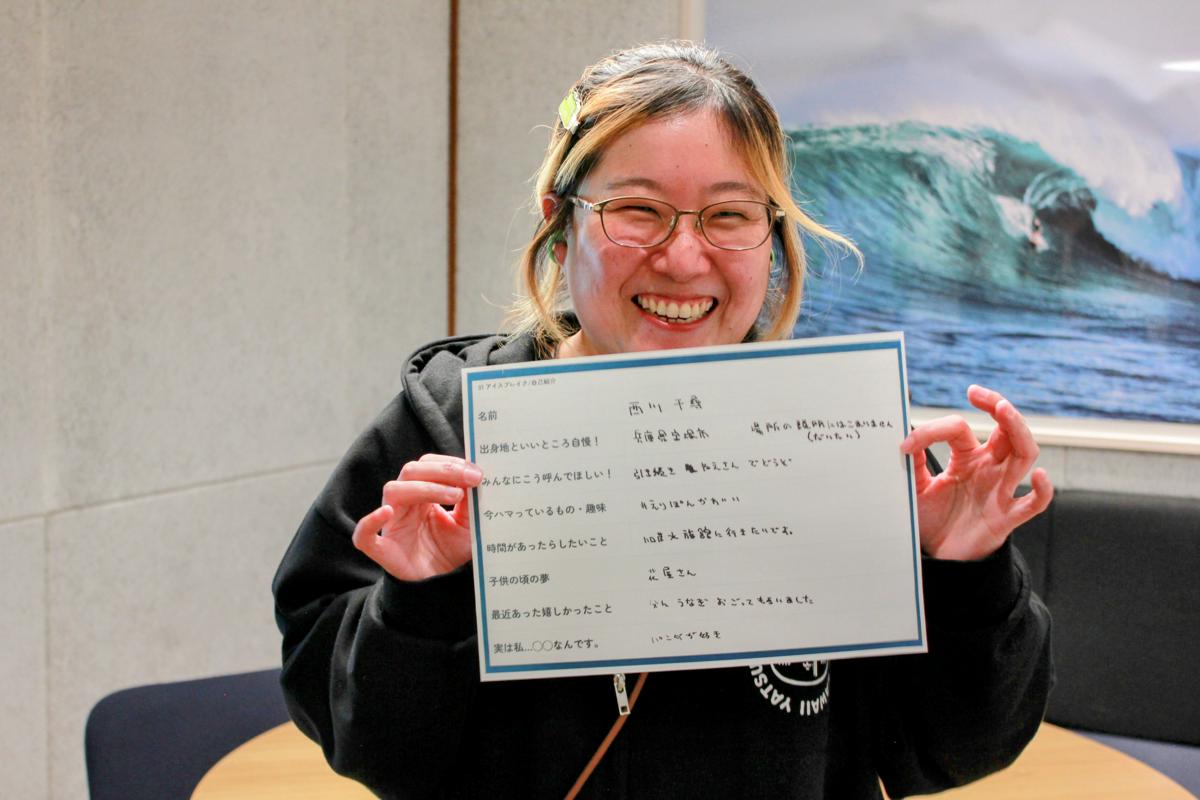 01 アイスブレイク/自己紹介
名前 西川 千尋
出身地といいところ自慢! 兵庫県宝塚市 場所の 説明にはこありません
(だいたい)
みんなにこう呼んでほしい! 引き続き ねえさん でどうぞ
今ハマっているもの・趣味 えりぽんかわいい
時間があったらしたいこと 水族館に行きたいです。
子供の頃の夢 花屋さん
最近あった嬉しかったこと うなぎ おごってもらいました
実は私...○○なんです。 が好き
WAII YATSU